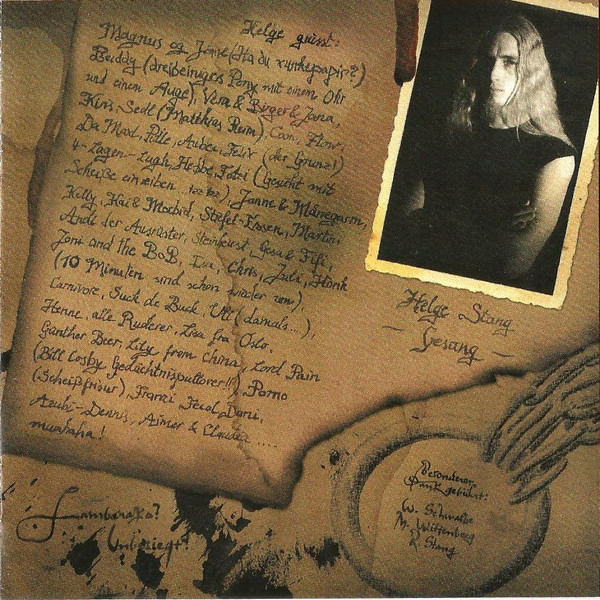 Helge grüsst:
Magnus og Janne (Ha du runkepapir?)
Buddy (dreibeiniges Pony mit einem Ohr
und einem Auge), Vera & Birger & Jana,
Kris, Sedl (Matthias Reim), Flow,
Da Mad, Pölle, Felix (der Grunz!)
4-Lagen- Hebbe, Fotzi (Gesicht mit
Scheiße einreiben ), Janne & Månegarm,
Kelly, Kai & Morbid, Stefel-Essen, Martin,
Andi der Ausrüster, Gesa & Fifi,
Joni and the BoB, Eva, Chris, Juli, Hönk
(10 Minuten sind schon wieder um),
Carnivore, Suck de Buck, Ulf (damals...),
Henne, alle Ruderer, Lisa fra Oslo,
Günther Beer, Lity from China, Lord Pain
(Bill Cosby Gedächtnispullover!!), Porno
(Scheißfrisur), Franzi, Dani,
Azubi-Dennis, Aimer & Claudia ....
muahaha!
Helge Stang
- Gesang -
Besonderer
Dank gebührt:
W. Schwalbe
M. Wittenberg
R. Stang
Lambaraßa?
Unbesiegt?